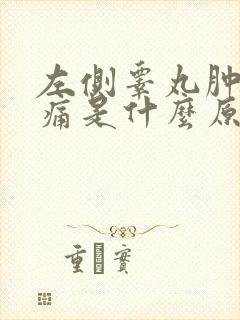 左側睾丸肿
痛是什麼原
重 實